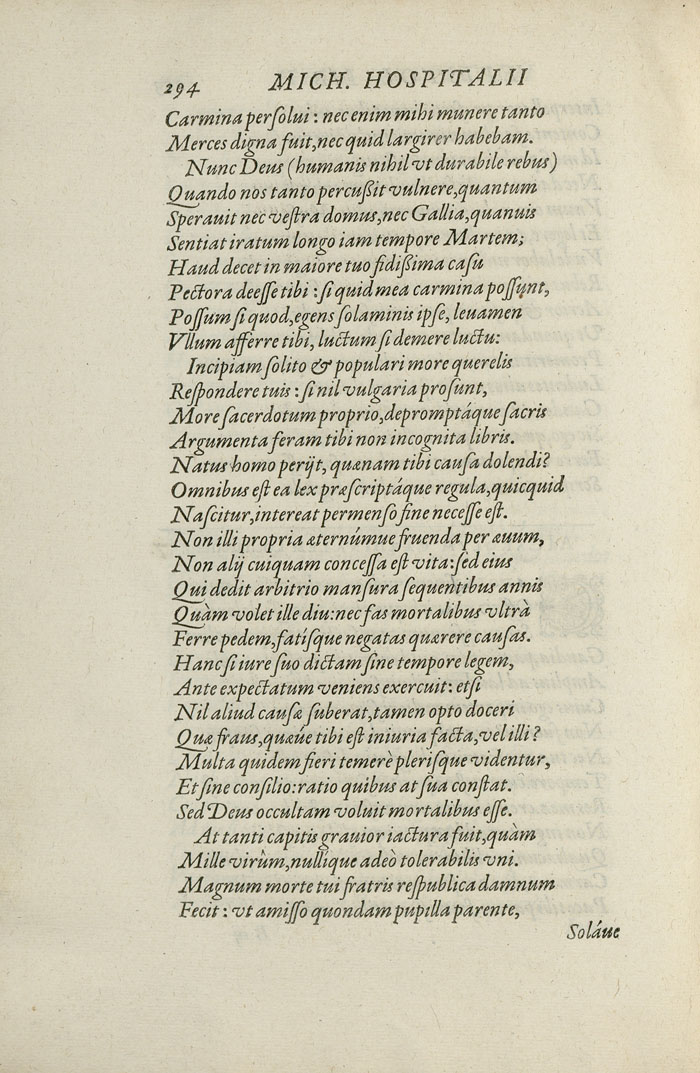 294 MICH. HOSPITALII
Carmina perſolui : nec enim mihi munere tanto
Merces digna fuit,nec quid largirer habebam.
Nunc Deus (humanis nihil vt durabile rebus)
Quando nos tanto percußit vulnere,quantum
Sperauit nec veſtra domus,nec Gallia,quanuis
Sentiat iratum longo iam tempore Martem;
Haud decet in maiore tuo fidißima caſu
Pectora deeſſe tibi : ſi quid mea carmina poſſunt,
Poſſum ſi quod,egens ſolaminis ipſe, leuamen
Vllum afferre tibi, luctum ſi demere luctu:
Incipiam ſolito & populari more querelis
Reſpondere tuis : ſi nil vulgaria proſunt,
More ſacerdotum proprio,depromptáque ſacris
Argumenta feram tibi non incognita libris.
Natus homo perijt, quænam tibi cauſa dolendi?
Omnibus eſt ea lex præſcriptáque regula,quicquid
Naſcitur,intereat permenſo fine neceſſe eſt.
Non illi propria æternúmue fruenda per æuum,
Non alij cuiquam conceſſa eſt vita:ſed eius
Qui dedit arbitrio manſura ſequentibus annis
Quàm volet ille diu:nec fas mortalibus vltrà
Ferre pedem,fatíſque negatas quærere cauſas.
Hanc ſi iure ſuo dictam ſine tempore legem,
Ante expectatum veniens exercuit: etſi
Nil aliud cauſæ ſuberat,tamen opto doceri
Quæ fraus,quæúe tibi eſt iniuria facta,vel illi ?
Multa quidem fieri temerè pleriſque videntur,
Et ſine conſilio:ratio quibus at ſua conſtat.
Sed Deus occultam voluit mortalibus eſſe.
At tanti capitis grauior iactura fuit,quàm
Mille virûm,nullíque adeò tolerabilis vni.
Magnum morte tui fratris reſpublica damnum
Fecit : vt amiſſo quondam pupilla parente,
Soláue